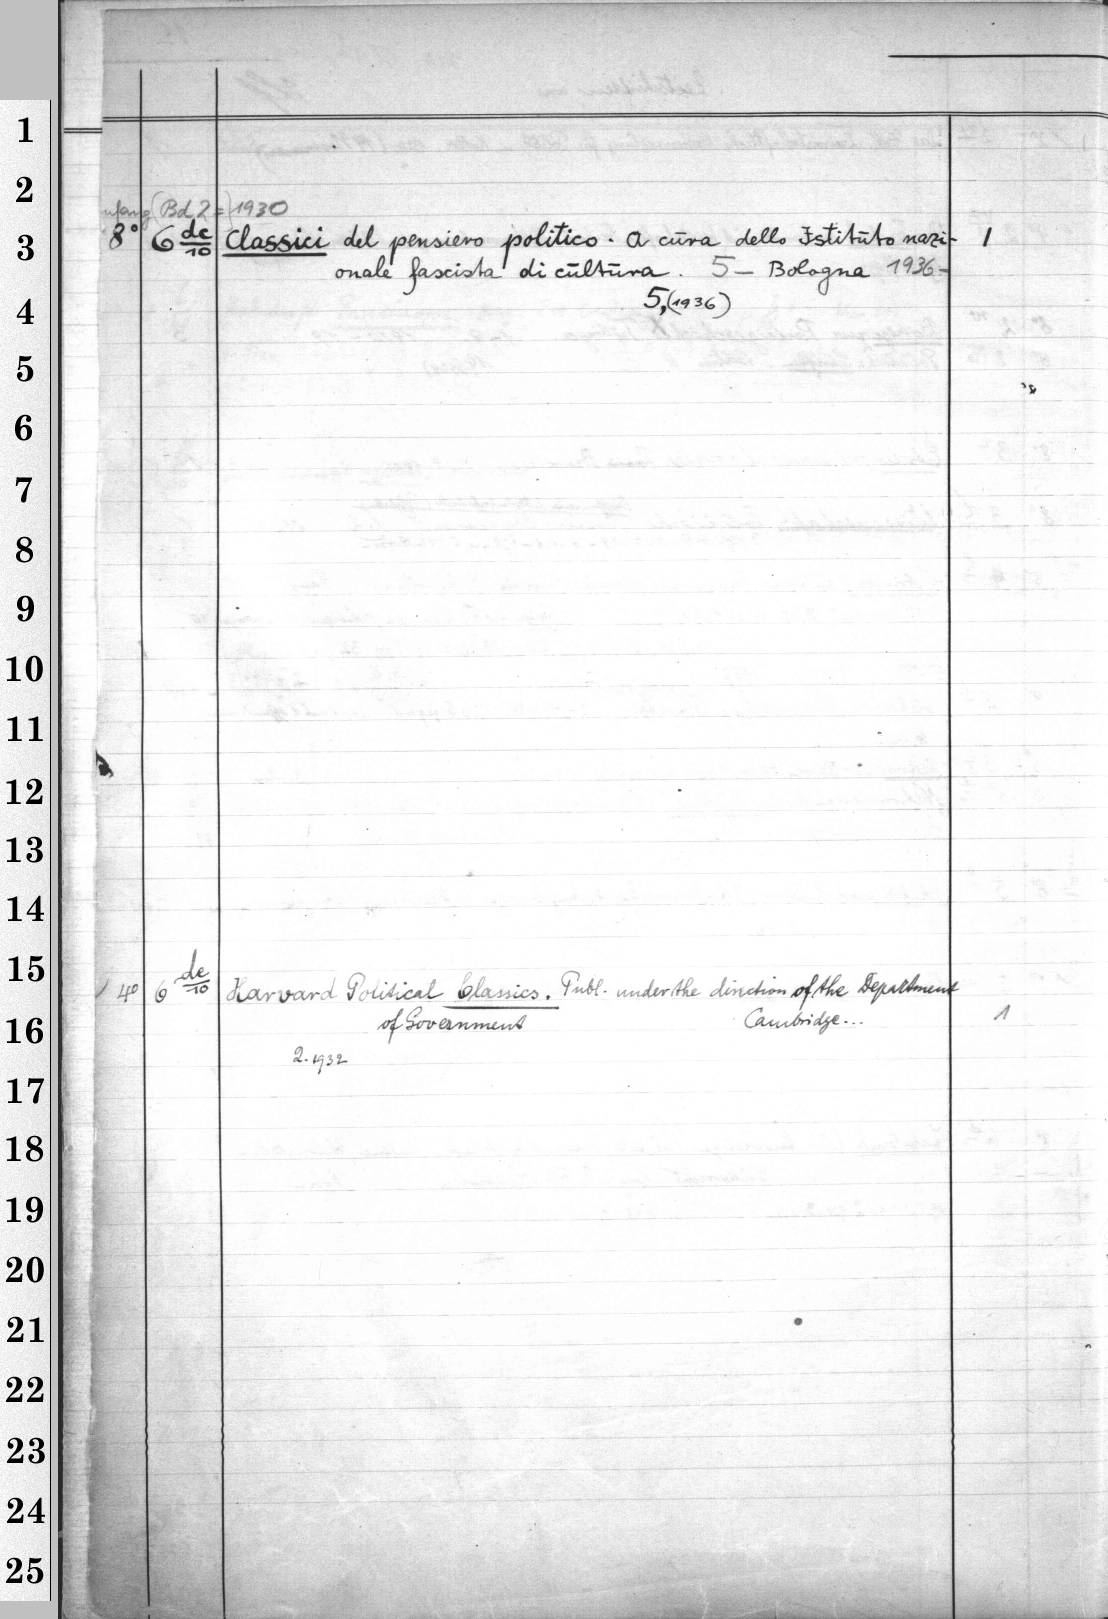 1
2
(Bd 2 = ) 1930
3
8° 6 de/10 Classici del pensiero politico. A cūra dello Istitūto nazi- 1
onale fascista di cūltūra. 5 — Bologna 1936-
4
5, (1936)
5
6
7
8
9
10
11
12
13
14
15
4° 6 de/10 Harvard Political Classics. Publ. under the direction of the Department
16
of Government Cambridge... 1
2. 1932
17
18
19
20
21
22
23
24
25